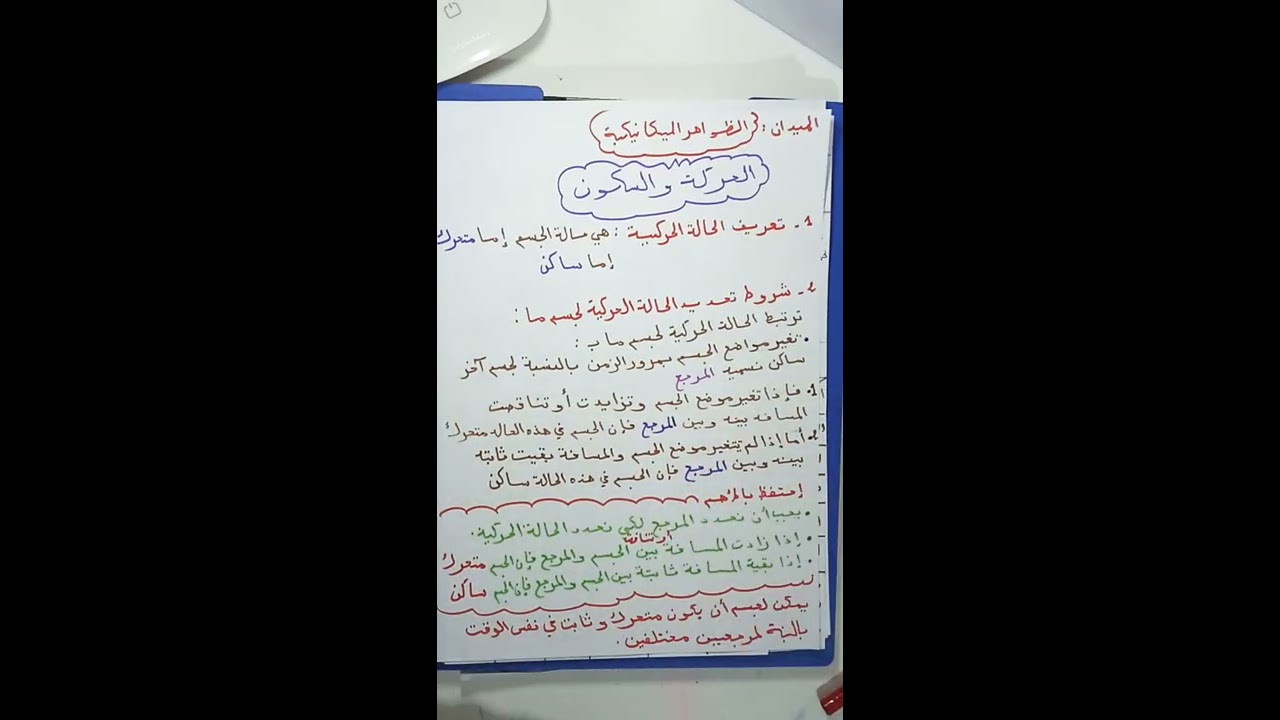 الميدان : الظواهر الميكانيكية
الحركة والسكون
1- تعريف الحالة الحركية : هي حالة الجسم إما متحرك
إما ساكن
2- شروط تحديد الحالة الحركية لجسم ما :
ترتبط الحالة الحركية لجسم ما ب :
• تغير مواضع الجسم بمرور الزمن بالنسبة لجسم آخر
ساكن نسميه المرجع
1• فإذا تغير موضع الجسم وتزايدت أو تناقصت
المسافة بينه وبين المرجع فإن الجسم في هذه الحالة متحرك
2• أما إذا لم يتغير موضع الجسم والمسافة بقيت ثابتة
بينه وبين المرجع فإن الجسم في هذه الحالة ساكن
إحتفظ بالأهم
• يجب أن نحدد المرجع لكي نحدد الحالة الحركية .
• إذا زادت أو تناقـة المسافة بين الجسم والمرجع فإن الجسم متحرك
• إذا بقية المسافة ثابتة بين الجسم والمرجع فإن الجسم ساكن
يمكن لجسم أن يكون متحرك وثابت في نفس الوقت
بالنسبة لمرجعيين مختلفين .